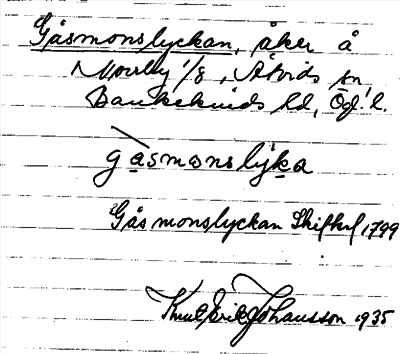 Gåsmonslyckan, åker å
Norrby 1/8, Åtvids sn
Bankekinds hd, Ög. l.
gåsmonslýka
Gåsmonslyckan Skifthl 1799
Knut Erik Johansson 1935